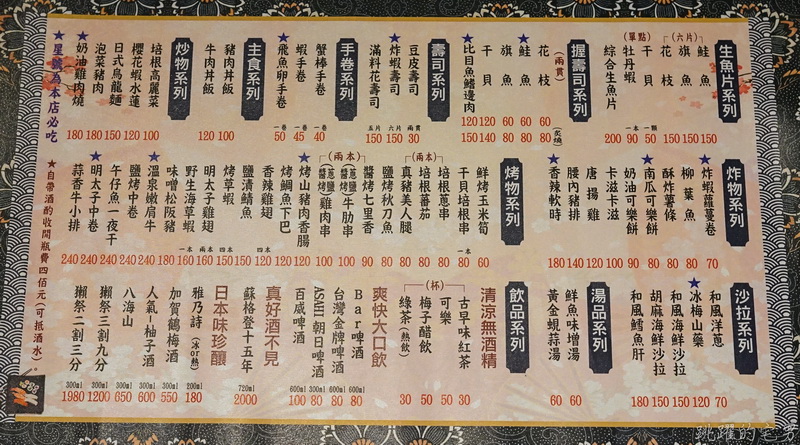 生魚片系列
(六片)
★鮭魚 150
旗魚 150
花枝 150
(單點)
干貝 一顆 50
牡丹蝦 一本 90
綜合生魚片 200
握壽司系列
(兩貫)
(炙燒)
花枝 60 80
★鮭魚 60 80
旗魚 60 80
干貝 120 140
★比目魚鰭邊肉 120 150
壽司系列
豆皮壽司 兩貫 30
★炸蝦壽司 六片 150
滿料花壽司 五片 150
手卷系列
蟹棒手卷 一卷 40
蝦手卷 一卷 45
★飛魚卵手卷 一卷 50
主食系列
豬肉丼飯 100
牛肉丼飯 120
炒物系列
培根高麗菜 100
櫻花蝦水蓮 120
日式烏龍麵 150
泡菜豬肉 180
★奶油雞肉燒 180
★星號為本店必吃
炸物系列
★炸蝦蘿蔓卷 70
柳葉魚 80
酥炸薯條 80
★南瓜可樂餅 80
奶油可樂餅 90
卡滋卡滋 100
唐揚雞 120
腰內豬排 140
★香辣軟時 180
烤物系列
鮮烤玉米筍 60
干貝培根串 一本 80
(兩本)
培根蔥串 80
培根蕃茄 80
★真豬美人腿 80
鹽烤秋刀魚 80
醬烤七里香 90
(兩本)
蔥鹽 醬烤 牛肋串 100
蔥鹽 醬烤 雞肉串 100
★烤山豬肉香腸 120
烤鯛魚下巴 120
香辣雞翅 四本 120
鹽漬鯖魚 150
烤草蝦 四本 150
明太子雞翅 兩本 160
野生海草蝦 一本 160
味噌松阪豬 180
★溫泉嫩肩牛 240
鹽烤中卷 240
午仔魚一夜干 240
明太子中卷 240
★蒜香牛小排 240
★自帶酒酌收開瓶費四佰元(可抵酒水)。
沙拉系列
和風洋蔥 70
★冰梅山藥 120
和風海鮮沙拉 150
胡麻海鮮沙拉 150
和風鱈魚肝 180
湯品系列
鮮魚味增湯 60
黃金蜆蒜湯 60
飲品系列
清涼無酒精
(杯)
古早味紅茶 30
可樂 50
梅子醋飲 50
綠茶(熱飲) 30
爽快大口飲
Bar啤酒 600ml 80
台灣金牌啤酒 600ml 80
ASHI朝日啤酒 300ml 80
百威啤酒 600ml 100
真好酒不見
蘇格登十五年 720ml 2000
日本味珍釀
雅乃詩(冰or熱) 200ml 180
加賀鶴梅酒 300ml 550
人氣-柚子酒 300ml 600
八海山 300ml 650
獺祭三割九分 300ml 1200
獺祭二割三分 300ml 1980
跳躍的宅男